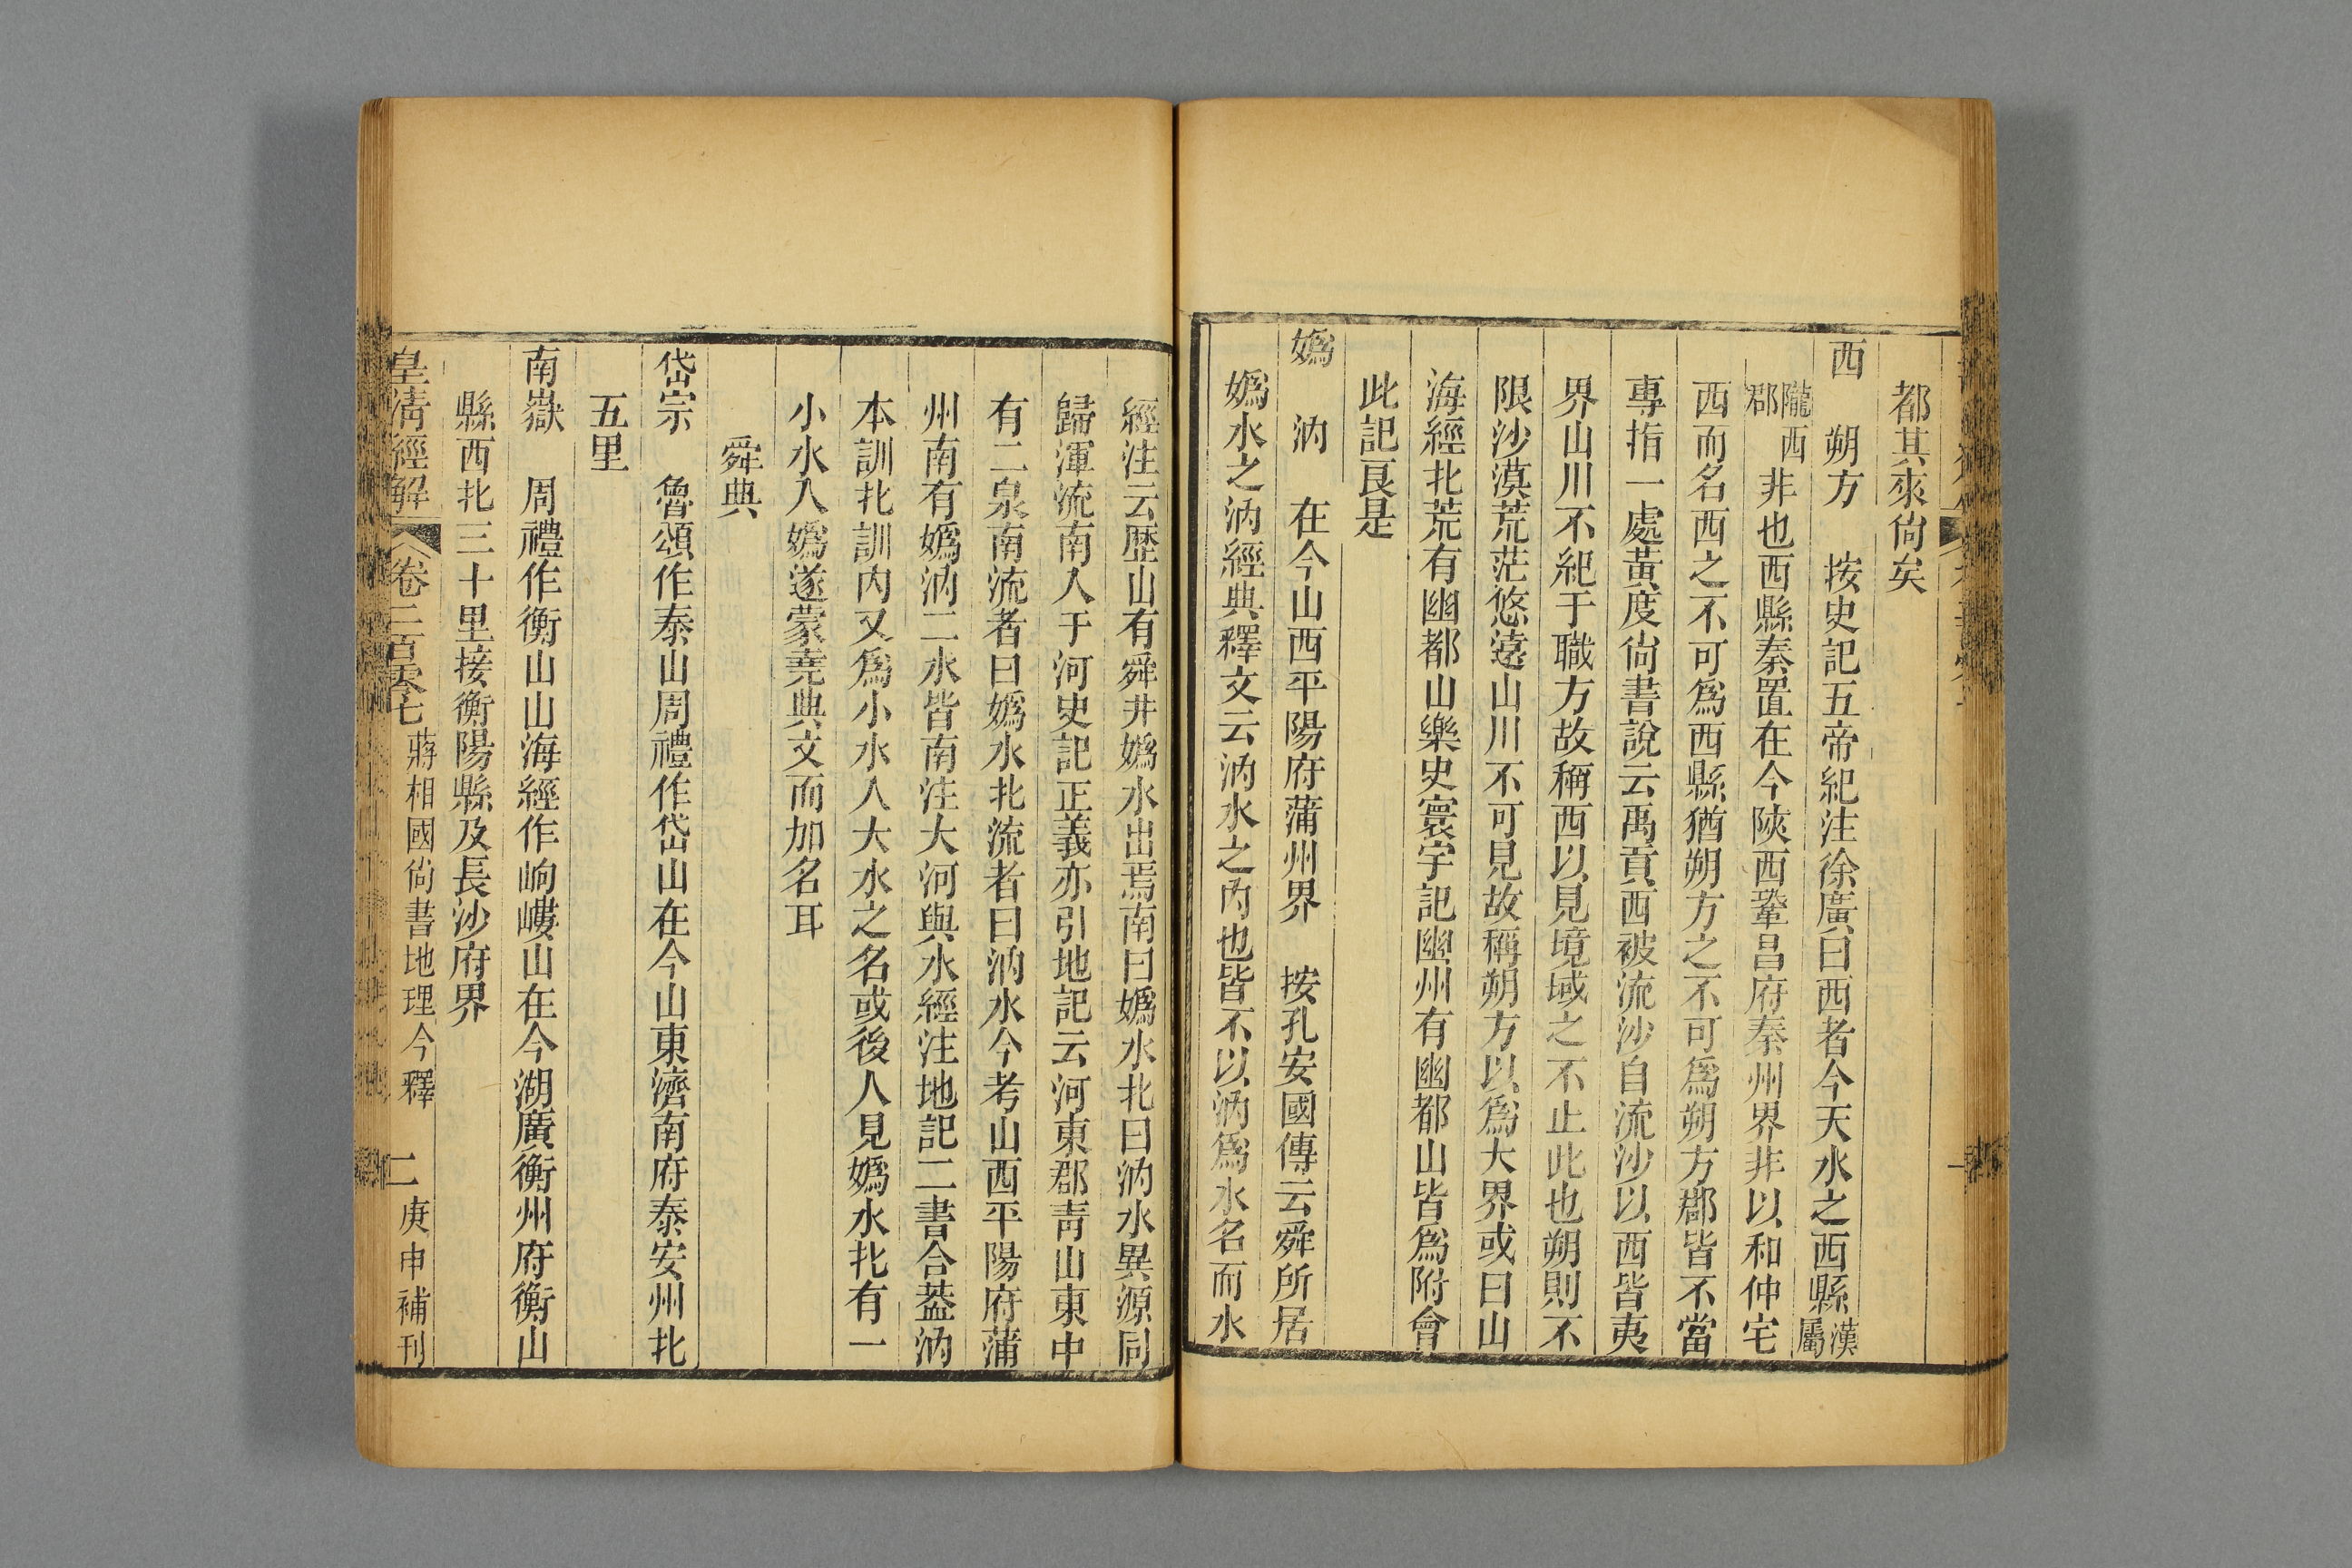 都其來尙矣
西　朔方　按史記五帝紀注徐廣曰西者今天水之西縣漢屬
隴西郡非也西縣秦置在今陝西鞏昌府秦州界非以和仲宅
西而名西之不可爲西縣猶朔方之不可爲朔方郡皆不當
專指一處黃度尙書說云禹貢西被流沙自流沙以西皆夷
界山川不紀于職方故稱西以見境域之不止此也朔則不
限沙漠荒茫悠遠山川不可見故稱朔方以爲大界或曰山
海經北荒有幽都山樂史寰宇記幽州有幽都山皆爲附會
此記良是
嬀　汭　在今山西平陽府蒲州界　按孔安國傳云舜所居
嬀水之汭經典釋文云汭水之內也皆不以汭爲水名而水
經注云歷山有舜井嬀水出焉南曰嬀水北曰汭水異源同
歸渾流南入于河史記正義亦引地記云河東郡靑山東中
有二泉南流者曰嬀水北流者曰汭水今考山西平陽府蒲
州南有嬀汭二水皆南注大河與水經注地記二書合葢汭
本訓北訓內又爲小水入大水之名或後人見嬀水北有一
小水入嬀遂蒙堯典文而加名耳
舜典
岱宗　魯頌作泰山周禮作岱山在今山東濟南府泰安州北
五里
南嶽　周禮作衡山山海經作岣嶁山在今湖廣衡州府衡山
縣西北三十里接衡陽縣及長沙府界
皇清經解　卷二百零七　蔣相國尙書地理今釋　二　庚申補刊